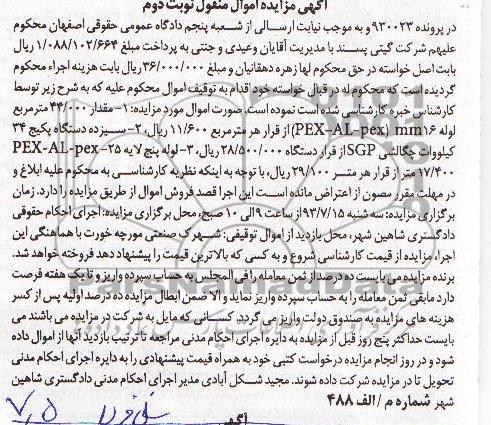 آگهی مزایده اموال منقول نوبت دوم
در پرونده ۹۳۰۰۲۳ و به موجب نیابت ارسالی از شعبه پنجم دادگاه عمومی حقوقی اصفهان محکوم
علیهم شرکت گیتی پسند با مدیریت آقایان وعیدی و جنتی به پرداخت مبلغ ۱/۰۸۸/۱۰۲/۶۶۴ ریال
بابت اصل خواسته در حق محکوم لها زهره دهقانیان و مبلغ ۳۶/۰۰۰/۰۰۰ ریال بابت هزینه اجراء محکوم
گردیده است که محکوم له در قبال خواسته خود اقدام به توقیف اموال محکوم علیه که به شرح زیر توسط
کارشناس خبره کارشناسی شده است نموده است. صورت اموال مورد مزایده: ۱- مقدار ۴۴/۰۰۰ مترمربع
لوله ۱۶mm (PEX-AL-pex) از قرار هر مترمربع ۱۱/۶۰۰ ریال، ۲- سیزده دستگاه پکیج ۳۴
کیلووات چگالشی SGP از قرار دستگاه ۲۸/۵۰۰/۰۰۰ ریال، ۳- لوله پنج لایه ۲۵- PEX-AL-pex
۱۷/۴۰۰ متر از قرار هر متر ۲۹/۱۰۰ ریال، با توجه به اینکه نظریه کارشناسی به محکوم علیه ابلاغ و
در مهلت مقرر مصون از اعتراض مانده است. این اجرا قصد فروش اموال از طریق مزایده را دارد. زمان
برگزاری مزایده: سه شنبه ۹۳/۷/۱۵ از ساعت ۹ الی ۱۰ صبح، محل برگزاری مزایده: اجرای احکام حقوقی
دادگستری شاهین شهر، محل بازدید از اموال توقیفی: شهرک صنعتی مورچه خورت با هماهنگی این
اجراء. مزایده از قیمت کارشناسی شروع و به کسی که بالاترین قیمت را پیشنهاد دهد فروخته خواهد شد.
برنده مزایده می بایست ده درصد از ثمن معامله را فی المجلس به حساب سپرده واریز و تا یک هفته فرصت
دارد مابقی ثمن معامله را به حساب سپرده واریز نماید والا ضمن ابطال مزایده ده درصد اولیه پس از کسر
هزینه های مزایده به صندوق دولت واریز می گردد. کسانی که مایل به شرکت در مزایده می باشند می
بایست حداکثر پنج روز قبل از مزایده به دایره اجرای احکام مدنی مراجعه تا ترتیب بازدید آنها از اموال داده
شود و در روز انجام مزایده درخواست کتبی خود به همراه قیمت پیشنهادی را به دایره اجرای احکام مدنی
تحویل تا در مزایده شرکت داده شوند. مجید شکل آبادی مدیر اجرای احکام مدنی دادگستری شاهین
شهر شماره م / الف ۴۸۸
۷٫۵
آگهی